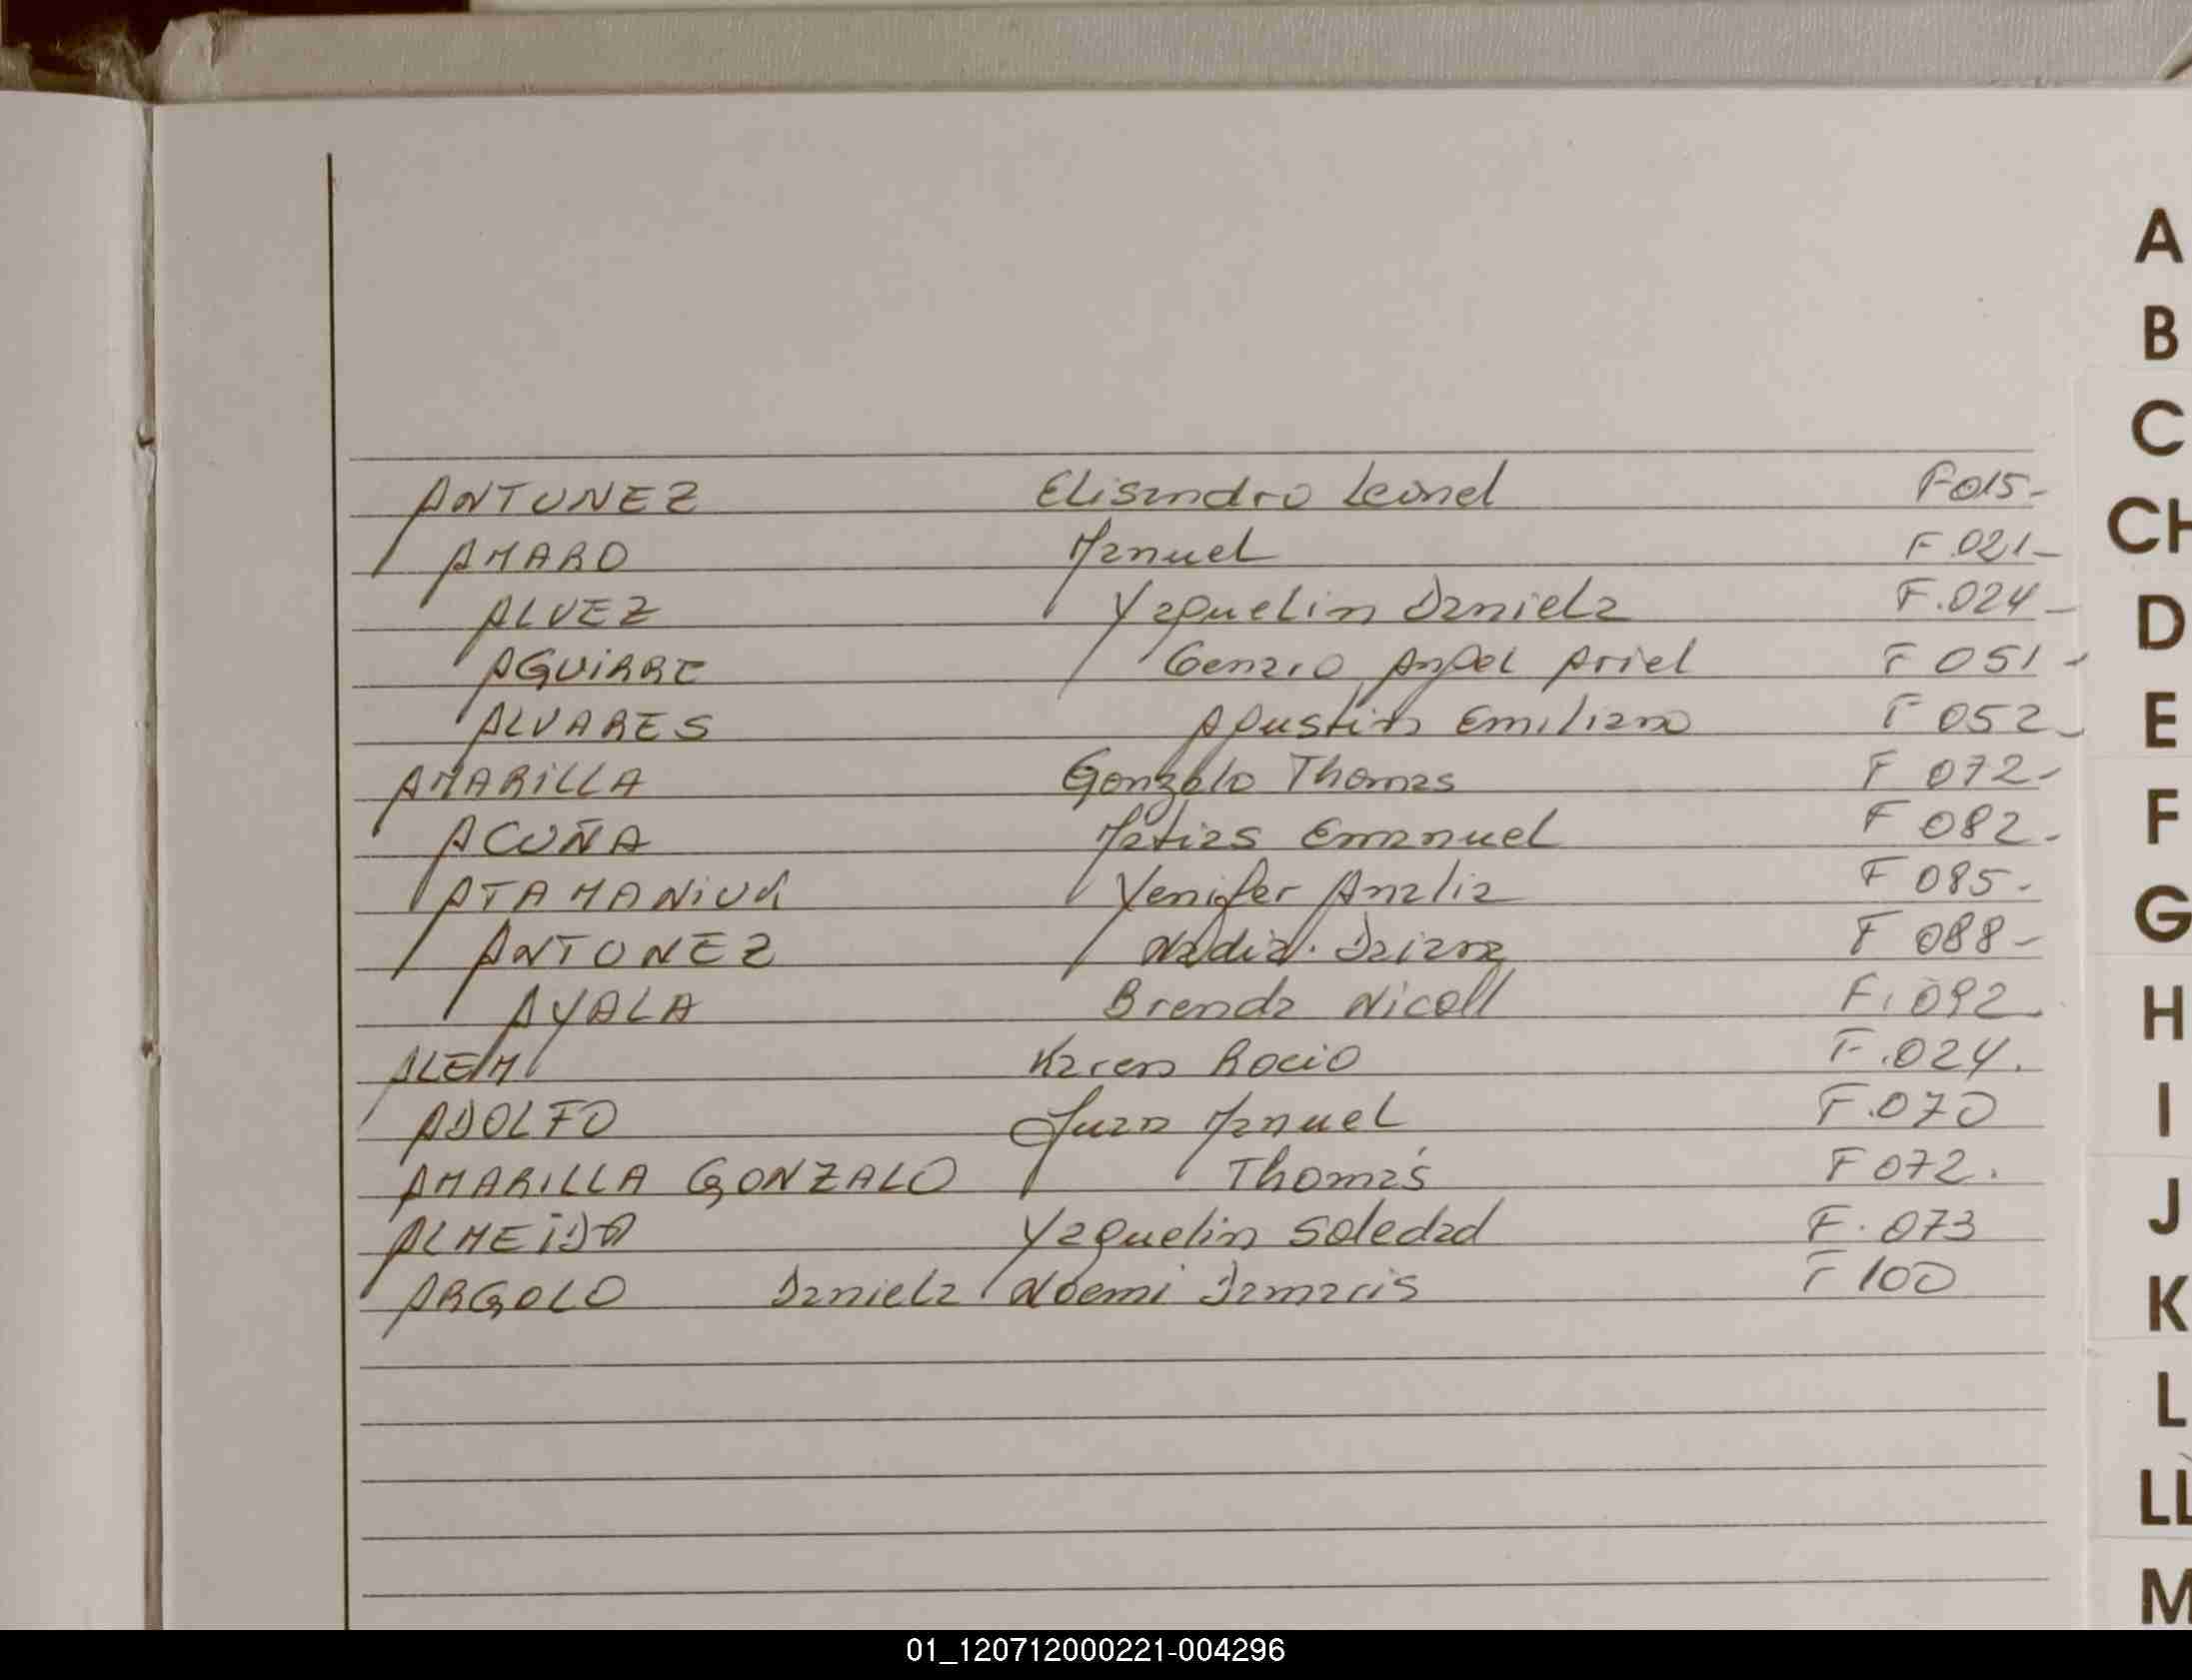 ANTUNEZ Elisandro Leonel F 015-
AMARO Manuel F.021-
ALVEZ Yaquelin Daniela F.024-
AGUIRRE Genaro Angel Ariel F 051-
ALVARES Agustin Emiliano F 052-
AMARILLA Gonzalo Thomas F 072-
ACUÑA Matias Emanuel F 082-
ATAMANIUK Yenifer Analia F 085-
ANTONEZ Nadia. Daiana F 088-
AYALA Brenda Nicoll F. 092.
ALEM Karen Rocio F.024.
ADOLFO Juan Manuel F.070
AMARILLA GONZALO Thomás F 072.
ALMEIDA Yaquelin Soledad F. 073
ARGOLO Daniela Noemi Damaris F 100
A
B
C
CH
D
E
F
G
H
I
J
K
L
LL
M
01_120712000221-004296